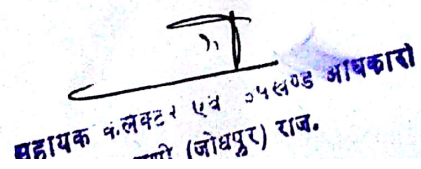 सहायक कलक्टर एवं उपखण्ड अधिकारी
(जोधपुर) राज.